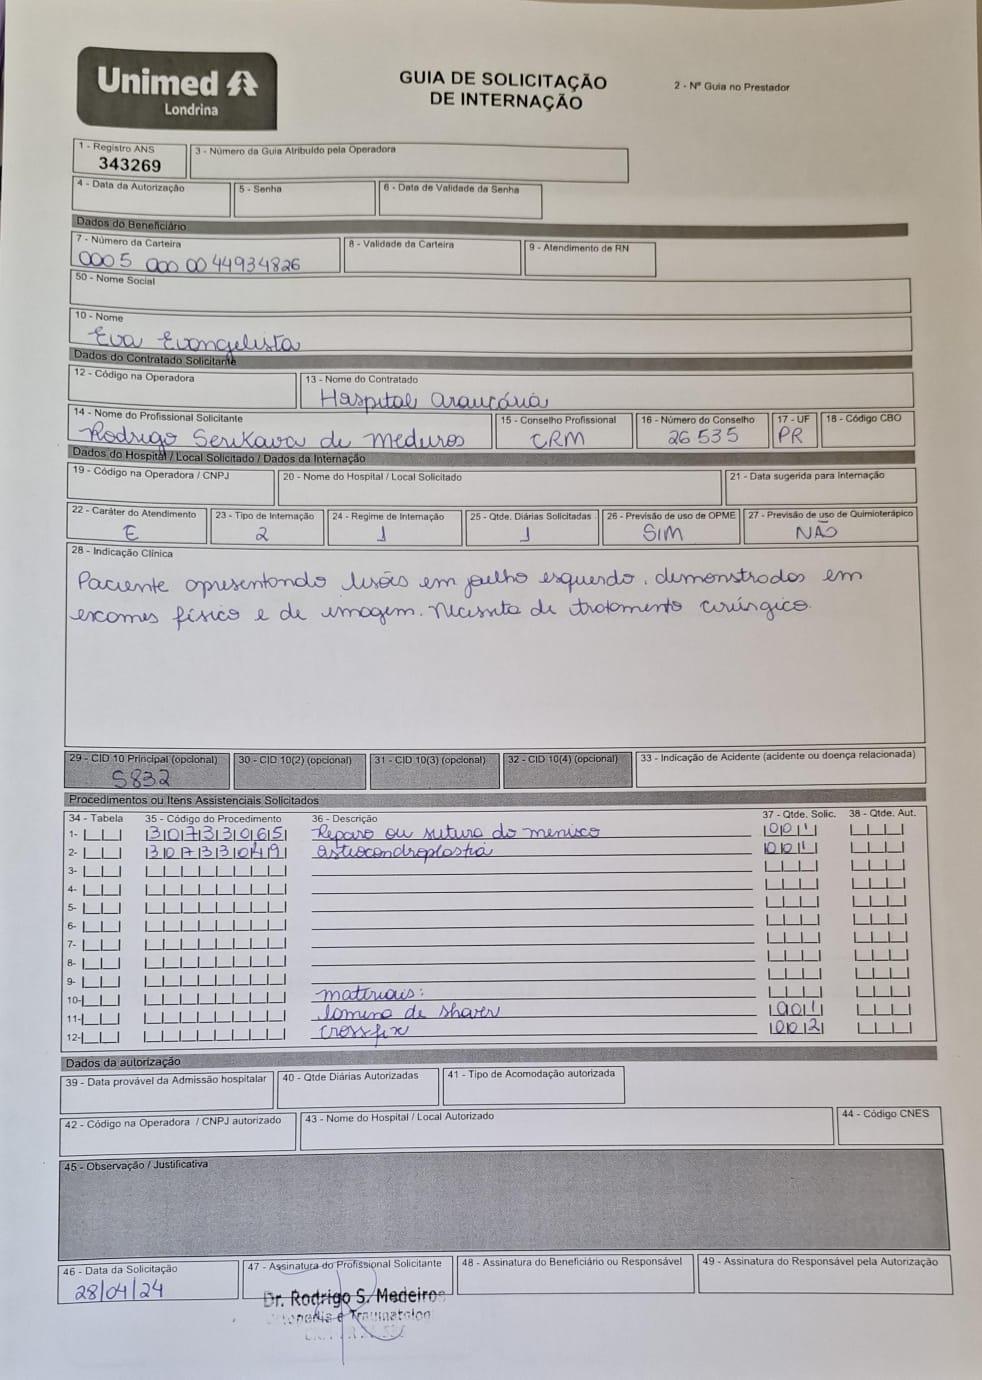 Unimed
Londrina
GUIA DE SOLICITAÇÃO
DE INTERNAÇÃO
2 - Nº Guia no Prestador
1 - Registro ANS
343269
3 - Número da Guia Atribuído pela Operadora
4 - Data da Autorização
5 - Senha
6 - Data de Validade da Senha
Dados do Beneficiário
7 - Número da Carteira
0005 000 00 44934826
8 - Validade da Carteira
9 - Atendimento de RN
50 - Nome Social
10 - Nome
Eva Evangelista
Dados do Contratado Solicitante
12 - Código na Operadora
13 - Nome do Contratado
Hospital Araucária
14 - Nome do Profissional Solicitante
Rodrigo Serikava de Medeiros
15 - Conselho Profissional
CRM
16 - Número do Conselho
26535
17 - UF
PR
18 - Código CBO
Dados do Hospital / Local Solicitado / Dados da Internação
19 - Código na Operadora / CNPJ
20 - Nome do Hospital / Local Solicitado
21 - Data sugerida para internação
22 - Caráter do Atendimento
E
23 - Tipo de Internação
2
24 - Regime de Internação
1
25 - Qtde. Diárias Solicitadas
1
26 - Previsão de uso de OPME
SIM
27 - Previsão de uso de Quimioterápico
NÃO
28 - Indicação Clínica
Paciente apresentando lesões em joelho esquerdo, demonstrados em
exames físico e de imagem. Necessita de tratamento cirúrgico.
29 - CID 10 Principal (opcional)
S832
30 - CID 10(2) (opcional)
31 - CID 10(3) (opcional)
32 - CID 10(4) (opcional)
33 - Indicação de Acidente (acidente ou doença relacionada)
Procedimentos ou Itens Assistenciais Solicitados
34 - Tabela 35 - Código do Procedimento 36 - Descrição 37 - Qtde. Solic. 38 - Qtde. Aut.
1- 30733065 Reparo ou sutura do menisco 001
2- 30733049 osteocondroplastia 001
3-
4-
5-
6-
7-
8-
9-
10- materiais:
11- lamina de shaver 001
12- crossfix 002
Dados da autorização
39 - Data provável da Admissão hospitalar
40 - Qtde Diárias Autorizadas
41 - Tipo de Acomodação autorizada
42 - Código na Operadora / CNPJ autorizado
43 - Nome do Hospital / Local Autorizado
44 - Código CNES
45 - Observação / Justificativa
46 - Data da Solicitação
28/04/24
47 - Assinatura do Profissional Solicitante
48 - Assinatura do Beneficiário ou Responsável
49 - Assinatura do Responsável pela Autorização
Dr. Rodrigo S. Medeiros